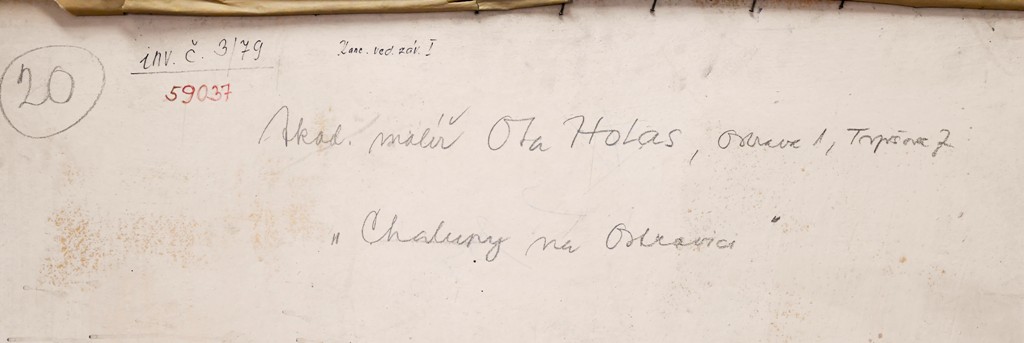 20
inv. č. 3/79
Kanc. ved. záv. I
59037
Akad. malíř Ota Holas, Ostrava 1, 7
„Chalupy na Ostravici"